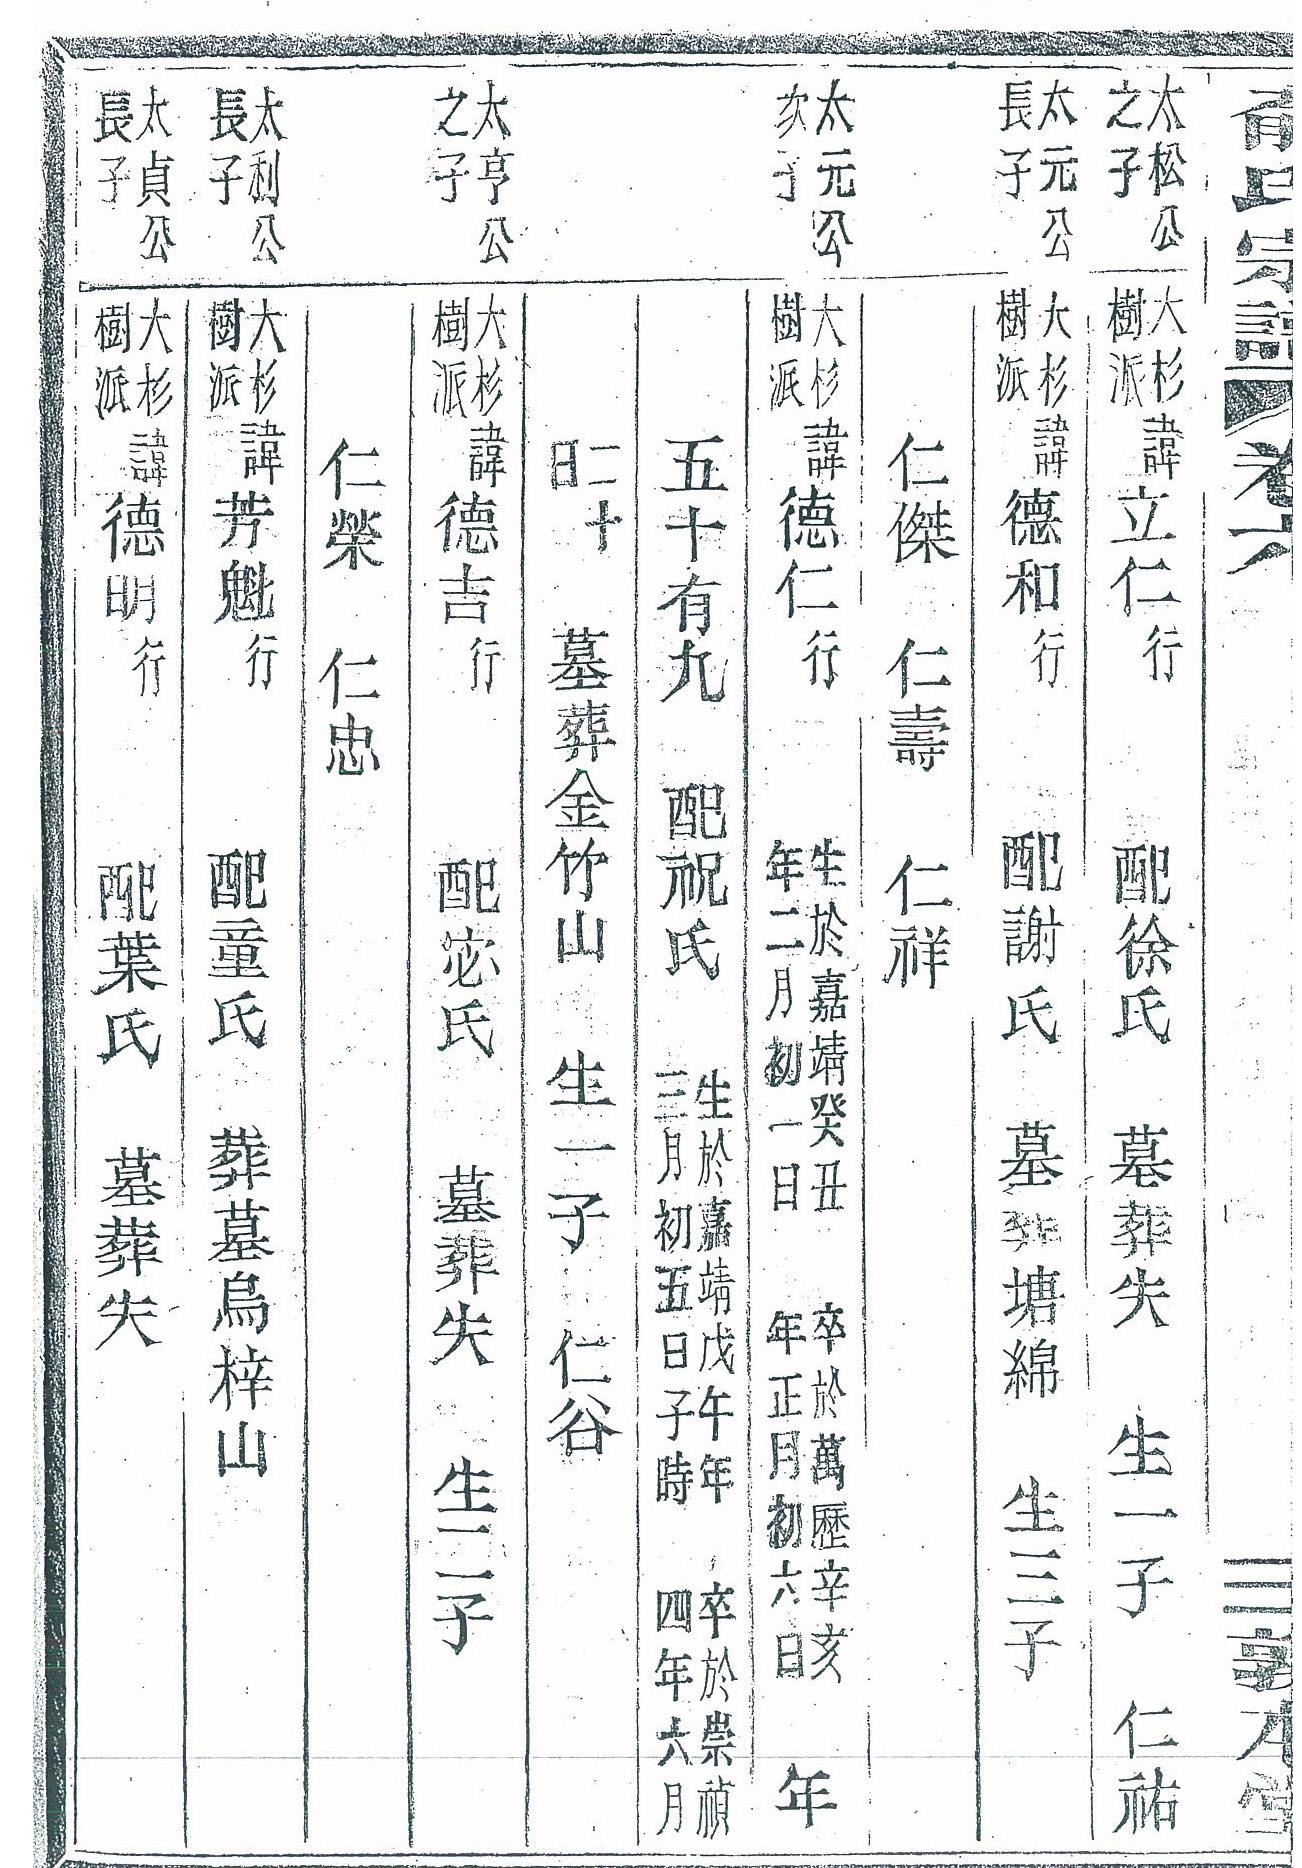 氏宗譜 卷六 三 敦本堂
太松公之子 大杉樹派 諱立仁行 配徐氏 墓葬失 生一子 仁祐
太元公長子 大杉樹派 諱德和行 配謝氏 墓葬塘綿 生三子
仁傑 仁壽 仁祥
太元公次子 大杉樹派 諱德仁行 生於嘉靖癸丑年二月初一日 卒於萬歷辛亥年正月初六日 年
五十有九 配祝氏 生於嘉靖戊午年三月初五日子時 卒於崇禎四年六月
二十日 墓葬金竹山 生一子 仁谷
太亨公之子 大杉樹派 諱德吉行 配宓氏 墓葬失 生二子
仁榮 仁忠
太利公長子 大杉樹派 諱芳魁行 配童氏 葬墓烏梓山
太貞公長子 大杉樹派 諱德明行 配葉氏 墓葬失